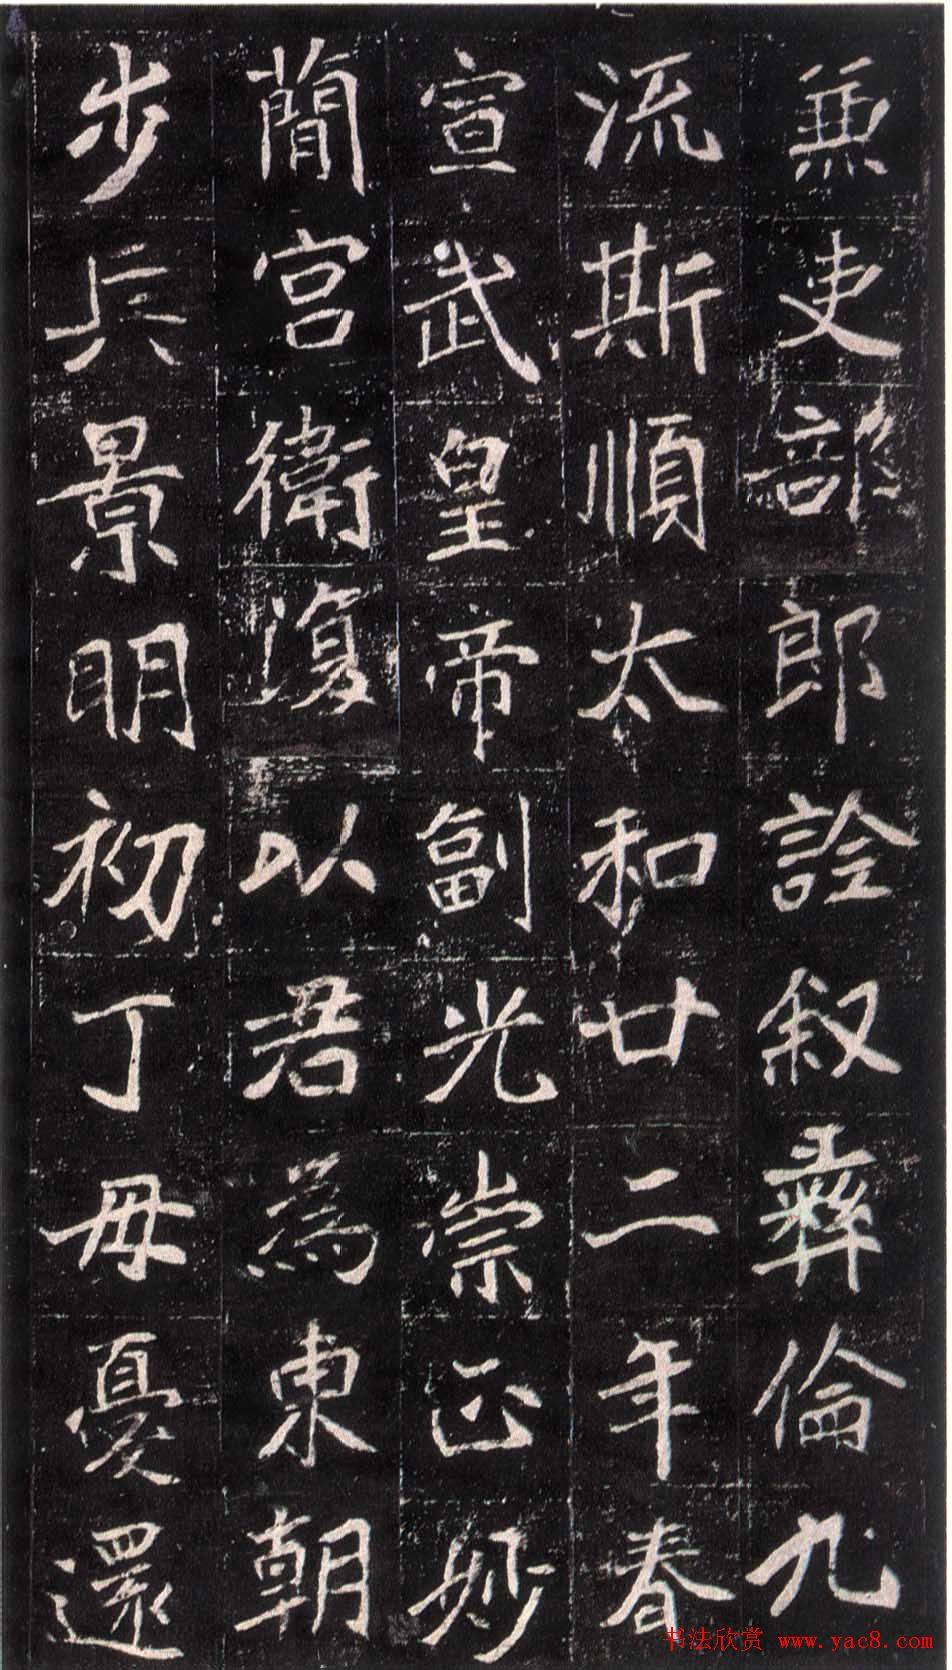 兼吏部郎詮敘彝倫九
流斯順太和廿二年春
宣武皇帝副光崇正妙
簡宮衛復以君為東朝
步兵景明初丁母憂還
书法欣赏 www.yac8.com